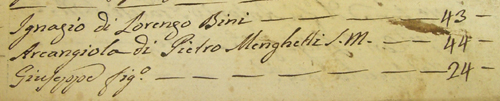 Ignazio di Lorenzo Bini — — — — 43 —
Arcangiola di Pietro Menghetti S.M. — — 44 —
Giuseppe figº. — — — — — 24 —